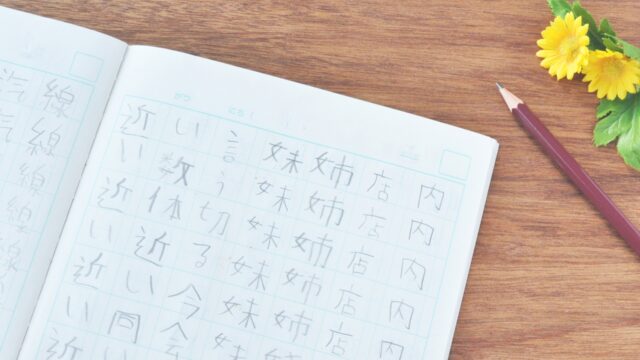 内内内内内
店店店店店
姉姉姉姉姉
妹妹妹妹妹
言う切る今
い数体近い同
近い近い近い近
線線線線線
汽汽